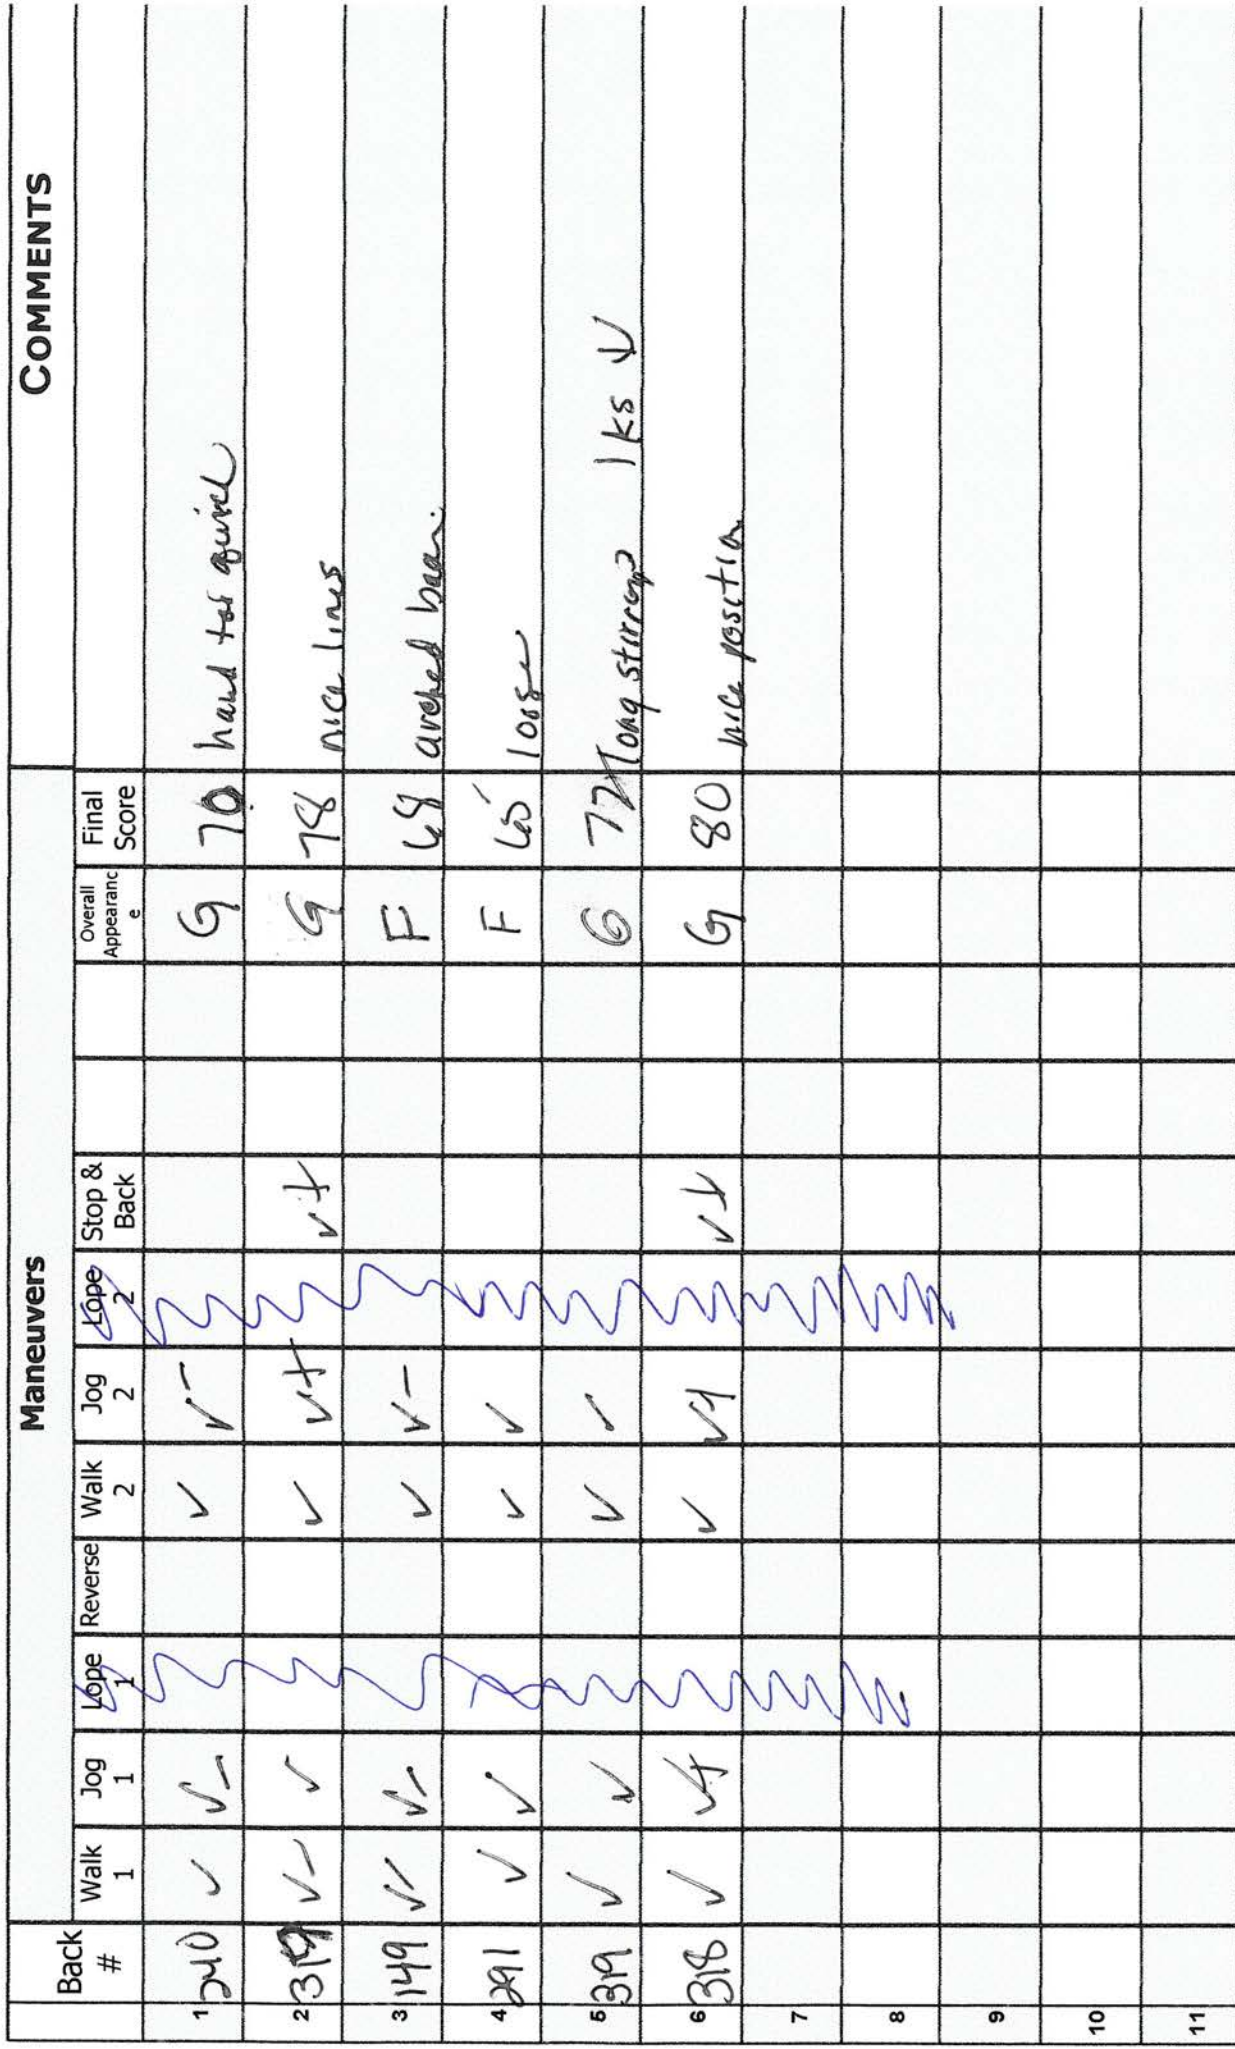 Maneuvers COMMENTS
Back # Walk 1 Jog 1 Lope 1 Reverse Walk 2 Jog 2 Lope 2 Stop & Back Overall Appearanc e Final Score
1 240 ✓ ✓- ✓ ✓- G 70 hand too quick
2 ✓- ✓ ✓ ✓+ ✓+ G 78 nice lines
3 149 ✓- ✓- ✓ ✓- F 68 arched
4 291 ✓ ✓ ✓ ✓ F 65 loose
5 319 ✓ ✓ ✓ ✓ G 77 long stirrup
6 318 ✓ ✓+ ✓ ✓+ G 80 nice position
7
8
9
10
11